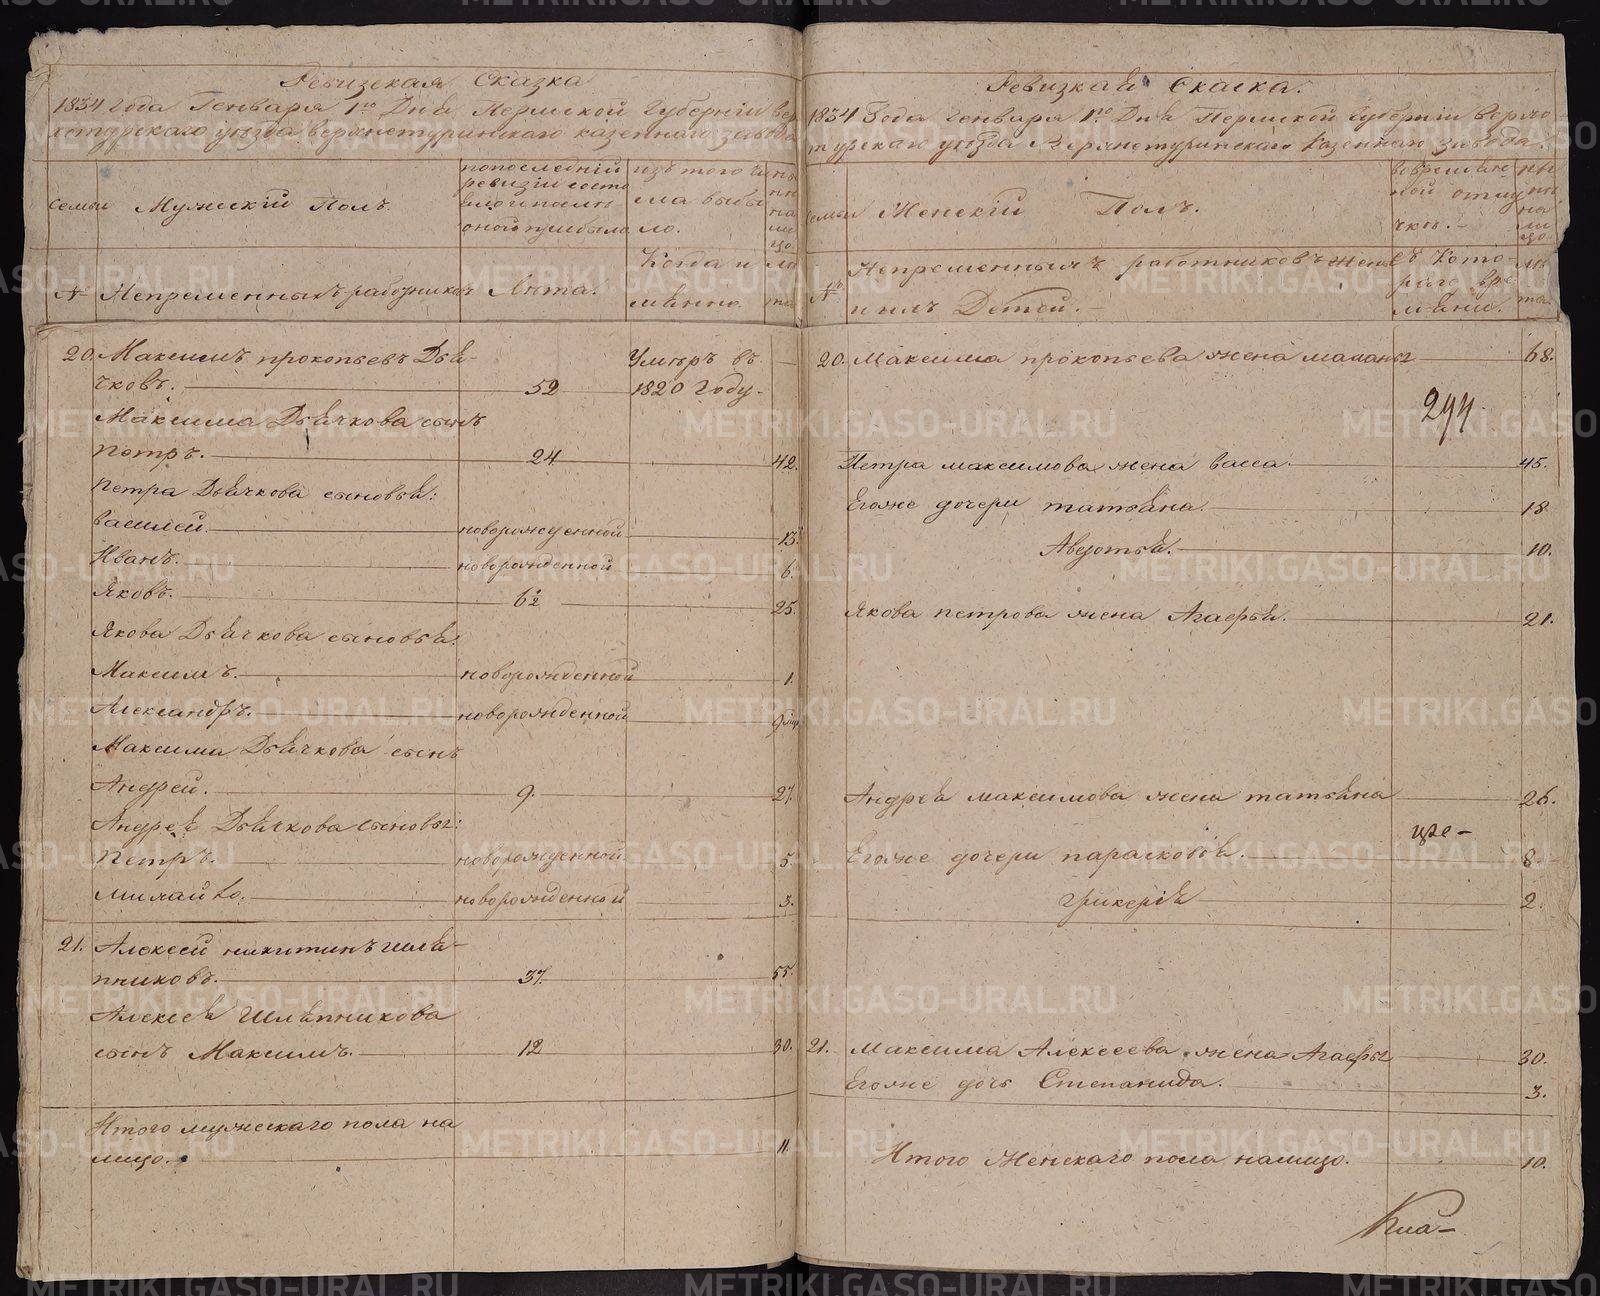 Ревизская Сказка
1834 года Генваря 1го Дня Пермской Губерніи вер
хотурскаго уезда верхнетуринскаго казеннаго завода
семьи
Мужескій Полъ.
попоследній
ревизіи состо
изъ того чи
сла выбы
ло.
№
Непременныхъ работниковъ
Лета.
Когда и
лѣ
та
20. Максимъ прокопьевъ Дья-
чковъ. 52 Умеръ въ
1820 году.
Максима Дьячкова сынъ
Петръ. 24 42.
Петра Дьячкова сыновья:
василей. новорожденной 13.
Иванъ. новорожденной 6.
Яковъ. 6½ 25.
Якова Дьячкова сыновья:
Максимъ. новорожденной 1.
Александръ. новорожденной 9
Максима Дьячкова сынъ
Андрей. 9. 27.
Андрея Дьячкова сыновья:
Петръ. новорожденной 5.
Михайло. новорожденной 3.
21. Алексей никитинъ шля-
пниковъ. 37. 55.
Алексея Шляпникова
сынъ Максимъ. 12 30.
Итого мужескаго пола на
лицо. 11.
Ревизкая Скаска.
1834 Года Генваря 1го Дня Пермской Губерніи Верхо-
турскаго уезда Верхнетуринскаго Казеннаго завода.
семьи
Женскій Полъ.
вовременно
ной отлу
чкѣ.
№
Непременныхъ работниковъ жены
и ихъ Детей.
съ Кото-
раго вре
мѣни.
лѣ
та.
20. Максима прокопьева жена маланья 68.
294.
Петра максимова жена васса. 45.
Егоже дочери татьяна. 18
Авдотья. 10.
Якова петрова жена Агафья. 21.
Андрея максимова жена татьяна 26.
Егоже дочери парасковья. 8
Гликерія 2.
21. Максима Алексеева жена Агафья 30.
Егоже дочь Степанида. 3.
Итого Женскаго пола налицо. 10.